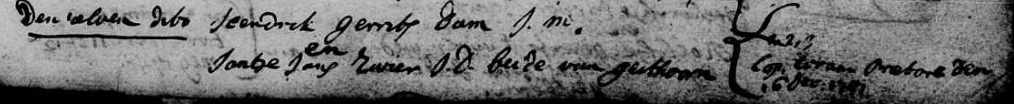 Den selven dito Hendrik Gerrits Dam J. M.
en
Jantje Jans Zwier J. D. beide van giethoorn
Cop. coram Pretore den
16 Dec.